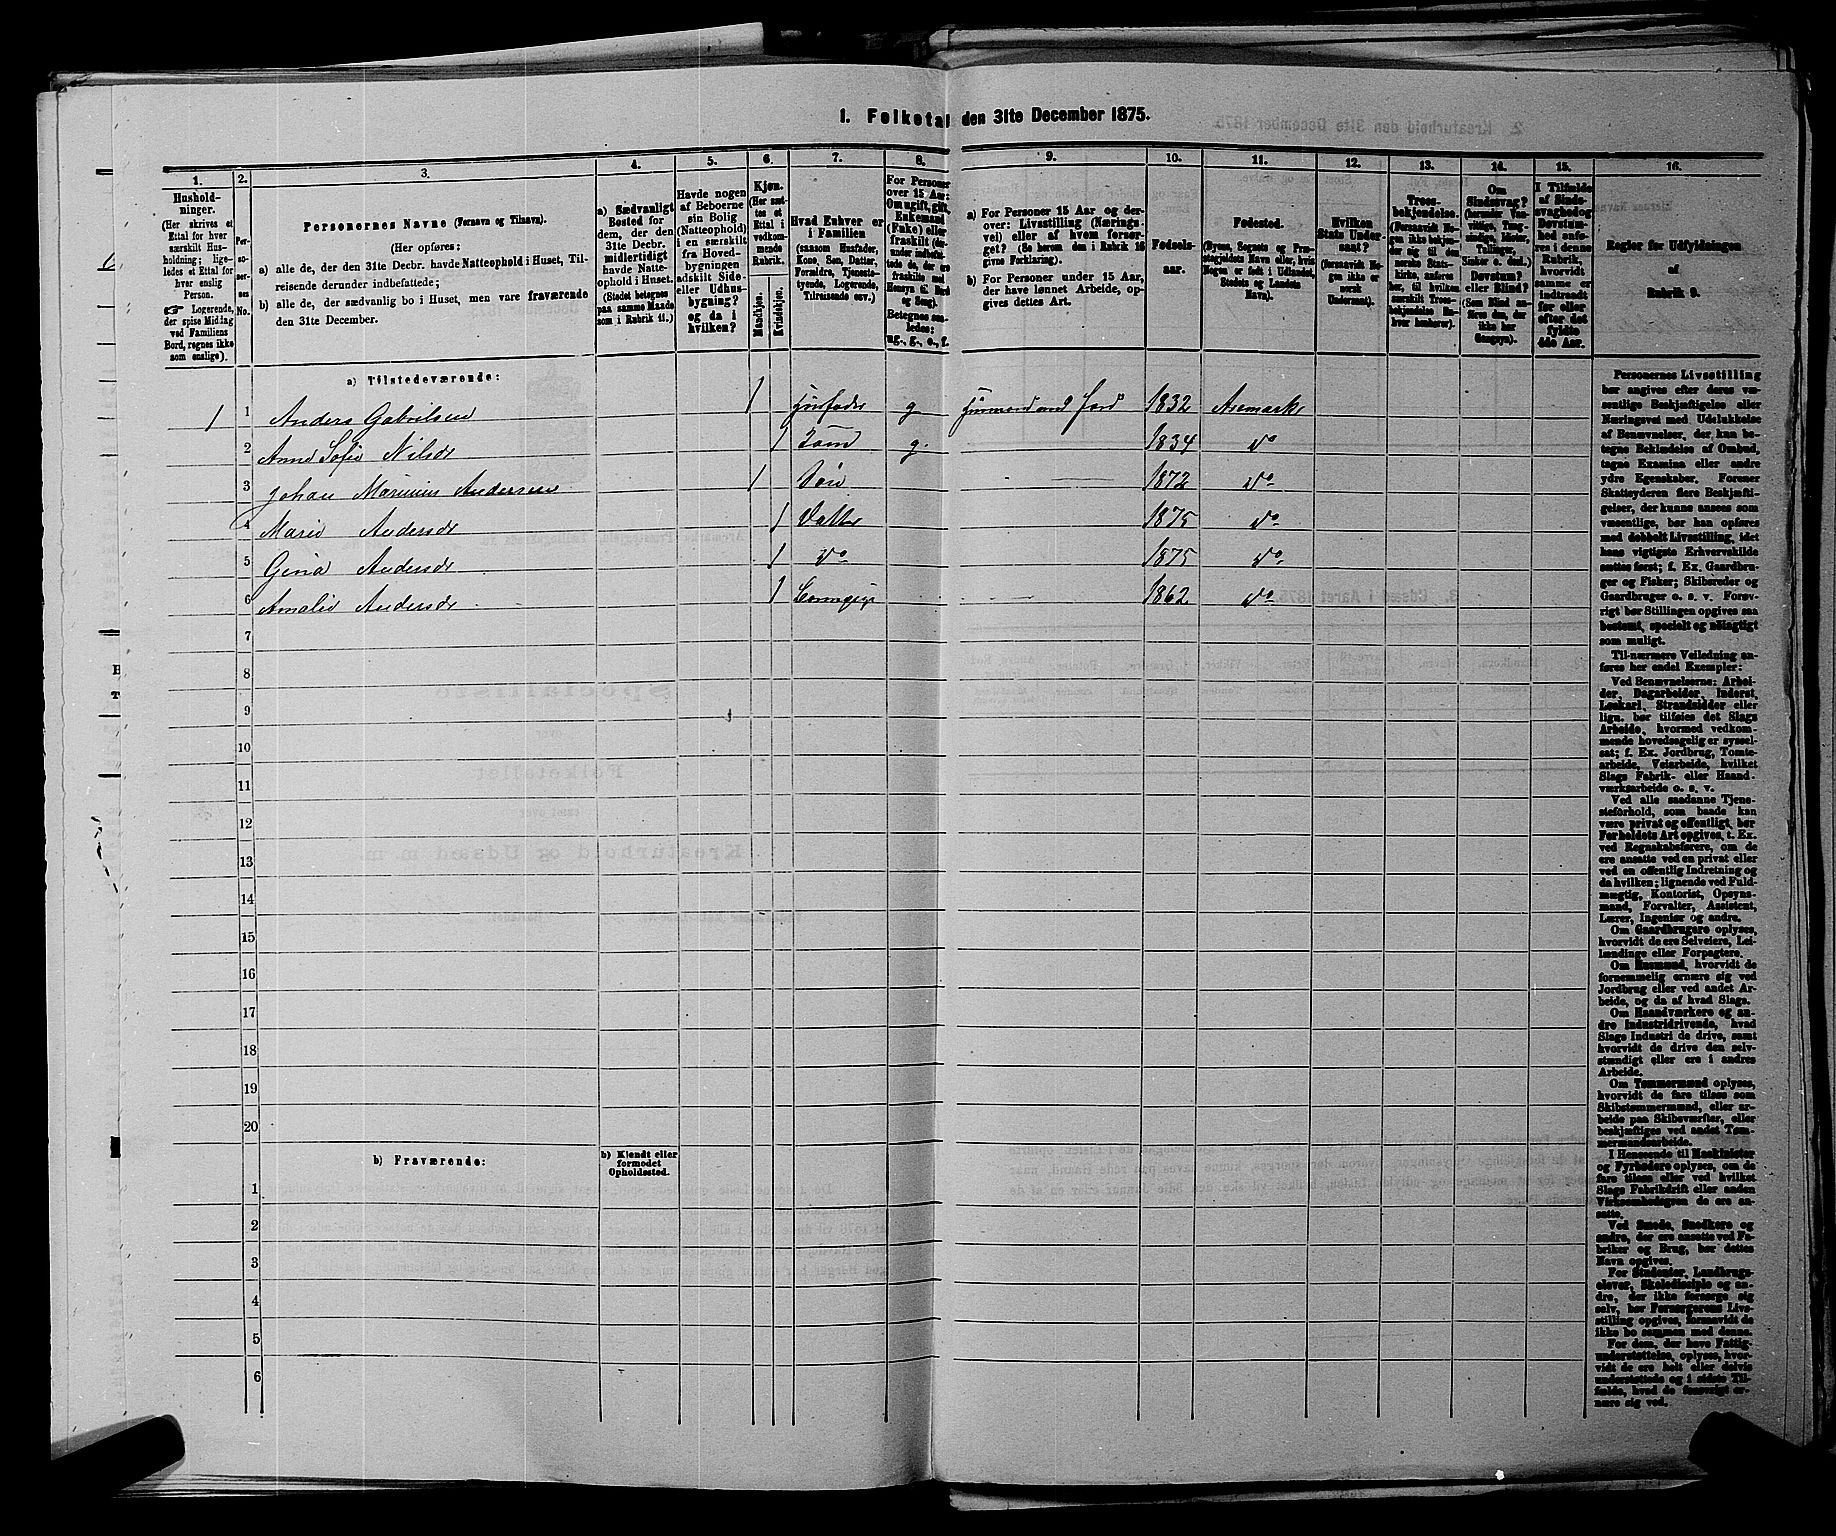 1. Folketal den 31te December 1875.
1.
Hushold-
ninger.
(Her skrives et
Ettal for hver
særskilt Hus-
holdning; lige-
ledes et Ettal for
hver enslig
Person.
☞ Logerende,
der spise Middag
ved Familiens
Bord, regnes ikke
som enslige).
2.
Per-
soner-
nes
No.
3.
Personernes Navne (Fornavn og Tilnavn).
(Her opføres:
a) alle de, der den 31te Decbr. havde Natteophold i Huset, Til-
reisende derunder indbefattede;
b) alle de, der sædvanlig bo i Huset, men vare fraværende
den 31te December.
4.
a) Sædvanligt
Bosted for
dem, der den
31te Decbr.
midlertidigt
havde Natte-
ophold i Huset.
(Stedet betegnes
paa samme Maade
som i Rubrik 11.)
5.
Havde nogen
af Beboerne
sin Bolig
(Natteophold)
i en særskilt
fra Hoved-
bygningen
adskilt Side-
eller Udhus-
bygning?
og da i
hvilken?
6.
Kjøn.
(Her sæt-
tes et
Ettal i
vedkom-
mende
Rubrik.
Mandkjøn.
Kvindekjøn.
7.
Hvad Enhver er
i Familien
(saasom Husfader,
Kone, Søn, Datter,
Forældre, Tjeneste-
tyende, Logerende,
Tilreisende osv.)
8.
For Personer
over 15 Aar:
Om ugift, gift,
Enkemand
(Enke) eller
fraskilt
Betegnes saa-
ledes:
ug., g., e., f.
9.
a) For Personer 15 Aar og der-
over: Livsstilling (Nærings-
vei) eller af hvem forsør-
get? (Se herom den i Rubrik 16
givne Forklaring).
b) For Personer under 15 Aar,
der have lønnet Arbeide, op-
gives dettes Art.
10.
Fødsels-
aar.
11.
Fødested.
(Byens, Sognets og Præ-
stegjeldets Navn eller, hvis
Nogen er født i Udlandet,
Stedets og Landets
Navn).
12.
Hvilken
Stats Under-
saat?
(forsaavidt No-
gen ikke er
norsk
Undersaat).
13.
Troes-
bekjendelse.
(Forsaavidt No-
gen ikke bekjen-
der sig til den
norske Stats-
kirke, anføres
her, til hvilken
særskilt Troes-
bekjendelse En-
hver henhører).
14.
Om
Sindssvag?
Døvstum?
eller Blind?
15.
I Tilfælde
af Sinds-
svaghed og
Døvstum-
hed anfø-
res i denne
Rubrik,
hvorvidt
samme er
indtraadt
før eller
efter det
fyldte
4de Aar.
16.
Regler for Udfyldningen
af
Rubrik 9.
a) Tilstedeværende:
1 1 Anders Gabrielsen 1 Husfader g Husmand med Jord 1832 Aremark
2 Anne Sofie Nilsdr 1 Kone g. 1834 do
3 Johan Marinius Andersen 1 Søn 1872 do
4 Marie Andersdr 1 Datter 1875 do
5 Gina Andersdr 1 do 1875 do
6 Amalie Andersdr 1 1862 do
7
8
9
10
11
12
13
14
15
16
17
18
19
20
b) Fraværende:
b) Kjendt eller
formodet
Opholdssted.
1
2
3
4
5
6
Personernes Livsstilling
bør angives efter deres væ-
sentlige Beskjæftigelse eller
Næringsvei med Udelukkelse
af Benævnelser, der kun be-
tegne Bekladelse af Ombud,
tagne Examina eller andre
ydre Egenskaber. Forener
Skatteyderen flere Beskjæfti-
gelser, der kunne ansees som
væsentlige, bør han opføres
med dobbelt Livsstilling, idet
hans vigtigste Erhvervskilde
sættes først; f. Ex. Gaardbru-
ger og Fisker; Skibsreder og
Gaardbruger o. s. v. Forøv-
rigt bør Stillingen opgives saa
bestemt, specielt og nøiagtigt
som muligt.
Til nærmere Veiledning an-
føres her endel Exempler:
Ved Benævnelserne: Arbei-
der, Dagarbeider, Inderst,
Løskarl, Strandsidder eller
lign. bør tilføies det Slags
Arbeide, hvormed vedkom-
mende hovedsagelig er syssel-
sat; f. Ex. Jordbrug, Tomte-
arbeide, Veiarbeide, hvilket
Slags Fabrik- eller Haand-
værksarbeide o. s. v.
Ved alle saadanne Tjene-
steforhold, som baade kan
være privat og offentligt, bør
Forholdets Art opgives, t. Ex.
ved Regnskabsførere, om de
ere ansatte ved en privat eller
ved en offentlig Indretning og
da hvilken; lignende ved Fuld-
mægtig, Kontorist, Opsyns-
mand, Forvalter, Assistent,
Lærer, Ingeniør og andre.
Om Gaardbrugere oplyses,
hvorvidt de ere Selveiere, Lei-
lændinge eller Forpagtere.
Om Husmænd, hvorvidt de
fornemmelig ernære sig ved
Jordbrug eller ved andet Ar-
beide, og da af hvad Slags.
Om Haandværkere og an-
dre Industridrivende, hvad
Slags Industri de drive, samt
hvorvidt de drive den selv-
stændigt eller ere i andres
Arbeide.
Om Tømmermænd oplyses,
hvorvidt de fare tilsøs som
Skibstømmermænd, eller ar-
beide paa Skibsværfter, eller
beskjæftiges ved andet Tøm-
mermandsarbeide.
I Henseende til Maskinister
og Fyrbødere oplyses, om de
fare tilsøs eller ved hvilket
Slags Fabrikdrift eller anden
Virksomhedsgren de ere an-
satte.
Ved Smede, Snedkere og
andre, der ere ansatte ved Fa-
briker og Brug, bør dettes
Navn opgives.
For Studenter, Landbrugs-
elever, Skoledisciple og an-
dre, der ikke forsørge sig
selv, bør Forsørgerens Livs-
stilling opgives, forsaavidt de
ikke bo sammen med denne.
For dem, der have Fattig-
understøttelse, oplyses, hvor-
vidt de ere helt eller delvis
understøttede og i sidste Til-
fælde, hvad de forøvrigt er-
nære sig ved.